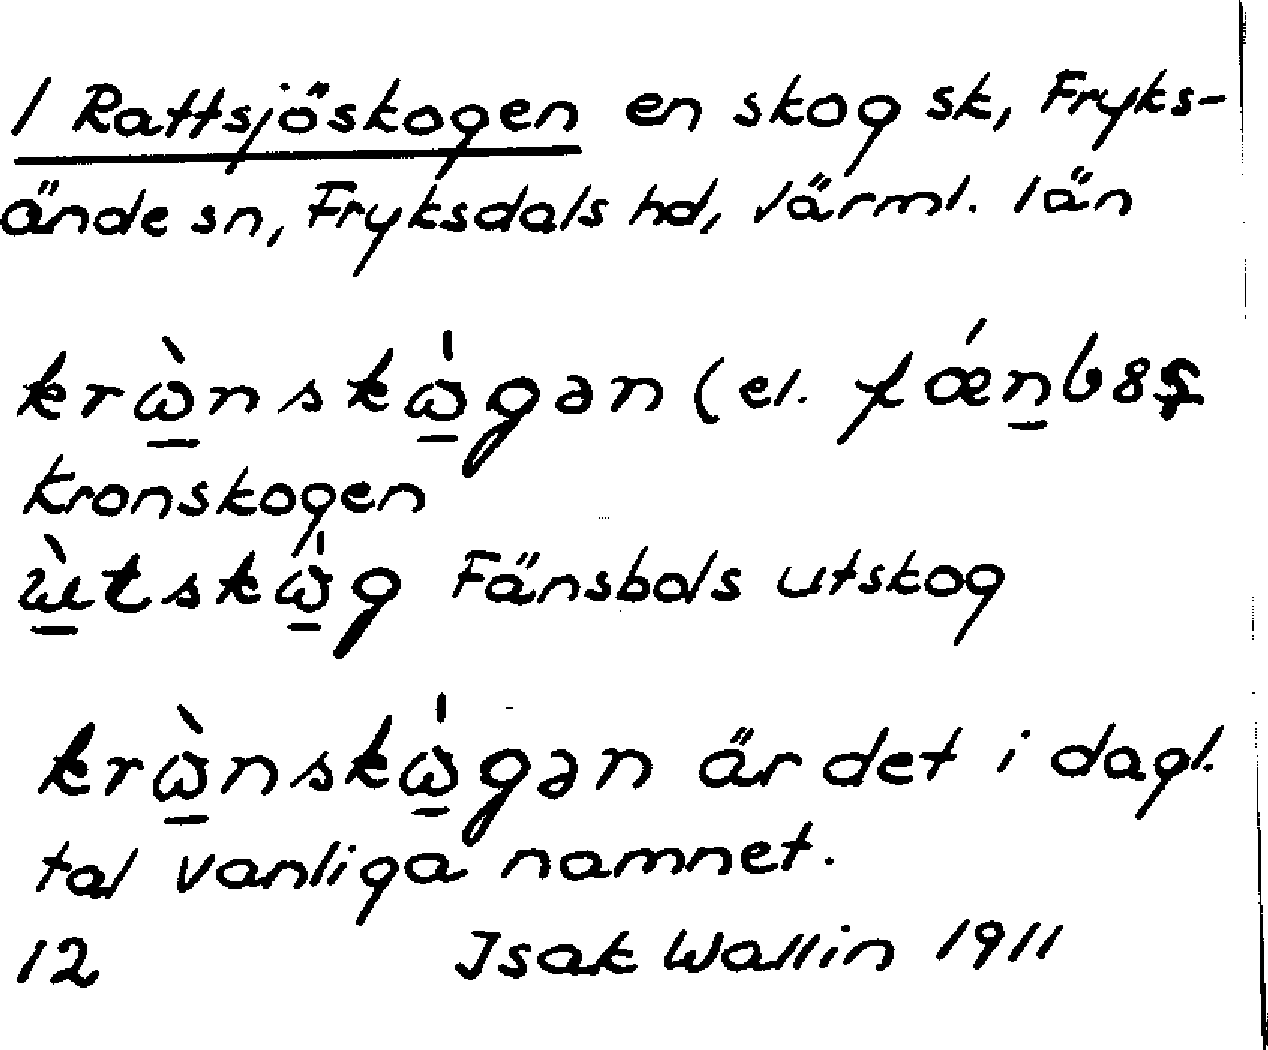 1 Rattsjöskogen en skog sk, Fryks-
ände sn, Fryksdals hd, Värml. län
krὼ̲nskω̲̍gən (el. fǽn̲
Kronskogen
ɯ̲̀tskω̲̍g Fänsbols utskog
krὼ̲nskω̲̍gən är det i dagl.
tal vanliga namnet.
12 Isak Wallin 1911